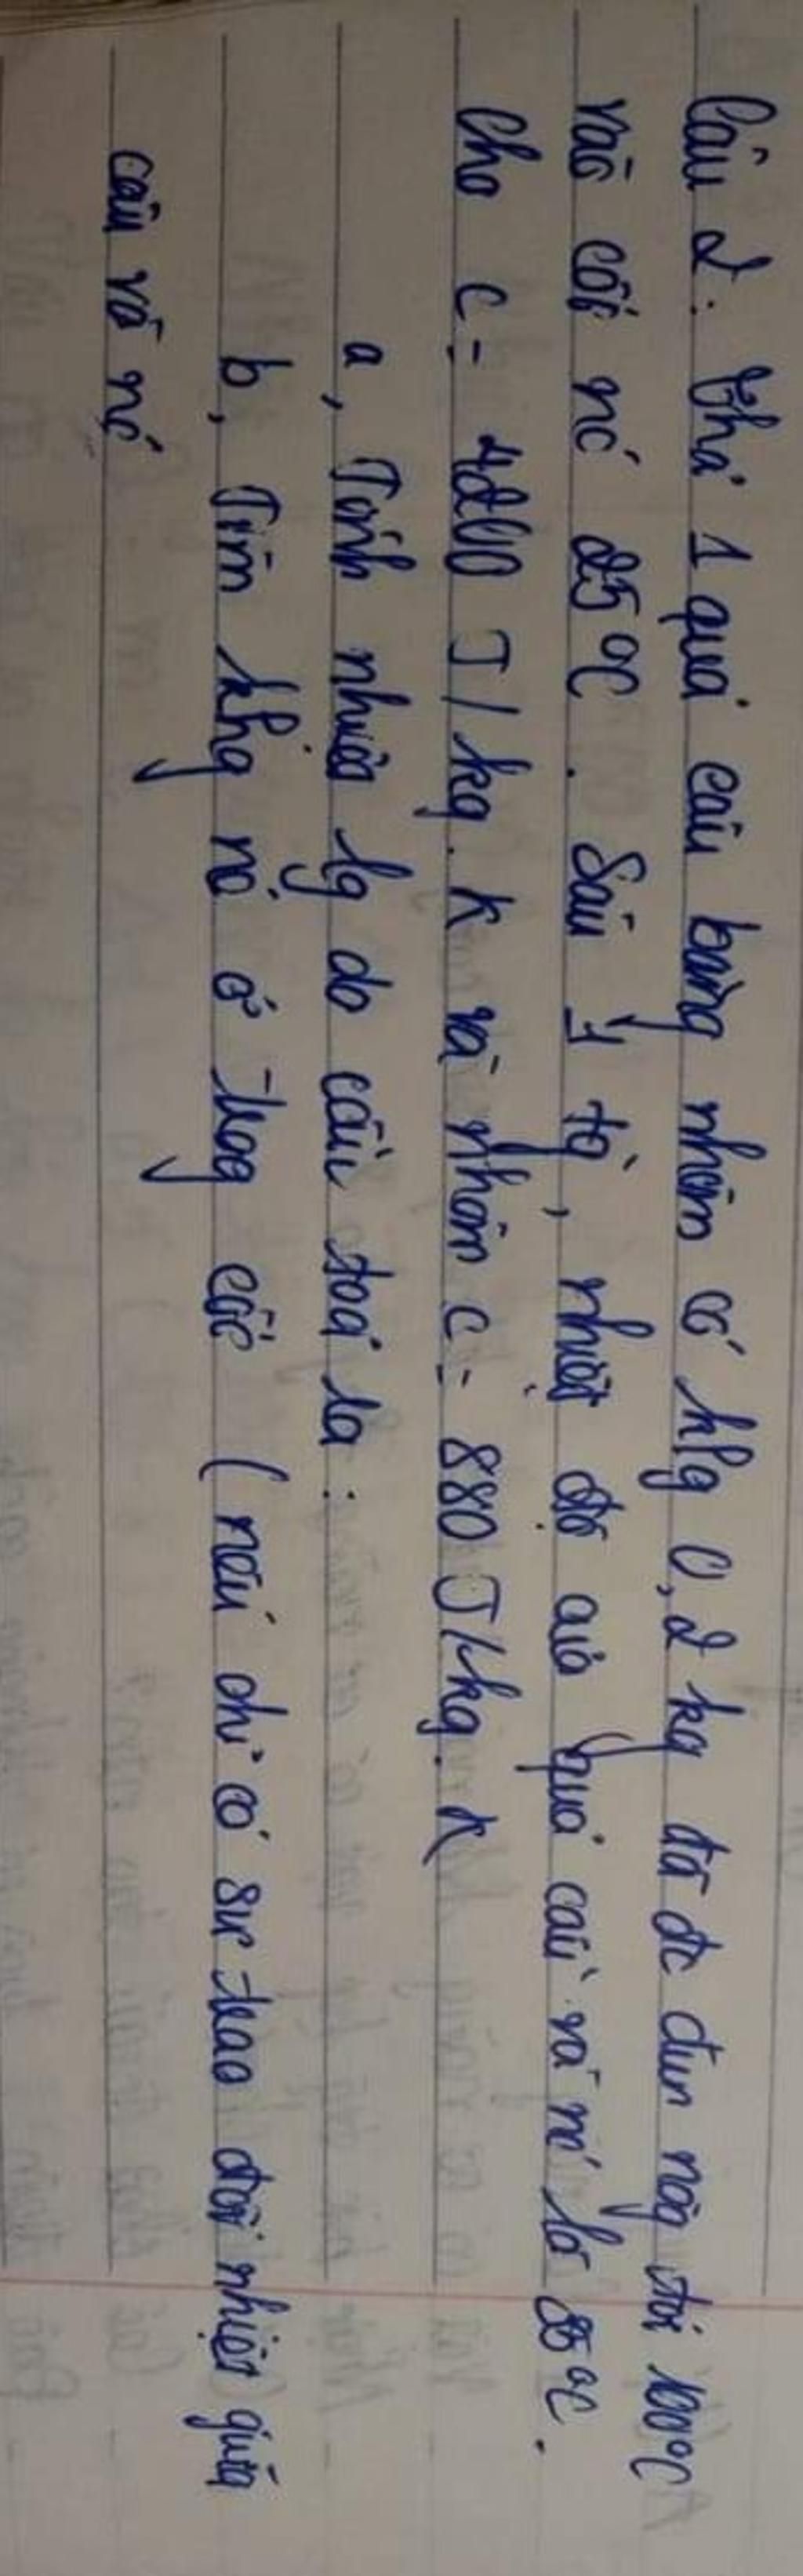 Câu 2: Thả 1 quả cầu bằng nhôm có klg 0,2 kg đã đc đun nóg tới 100°C
vào cốc nć 25°C. Sau 1 tg, nhiệt độ của quả cầu và nć là 25°C.
Cho c = 4200 J/kg.K và nhôm c = 880 J/kg.K
a, Tính nhiệt lg do cầu toả là:
b, Tìm khlg nć ở trog cốc (nếu chỉ có sự trao đổi nhiệt giữa
cầu và nć